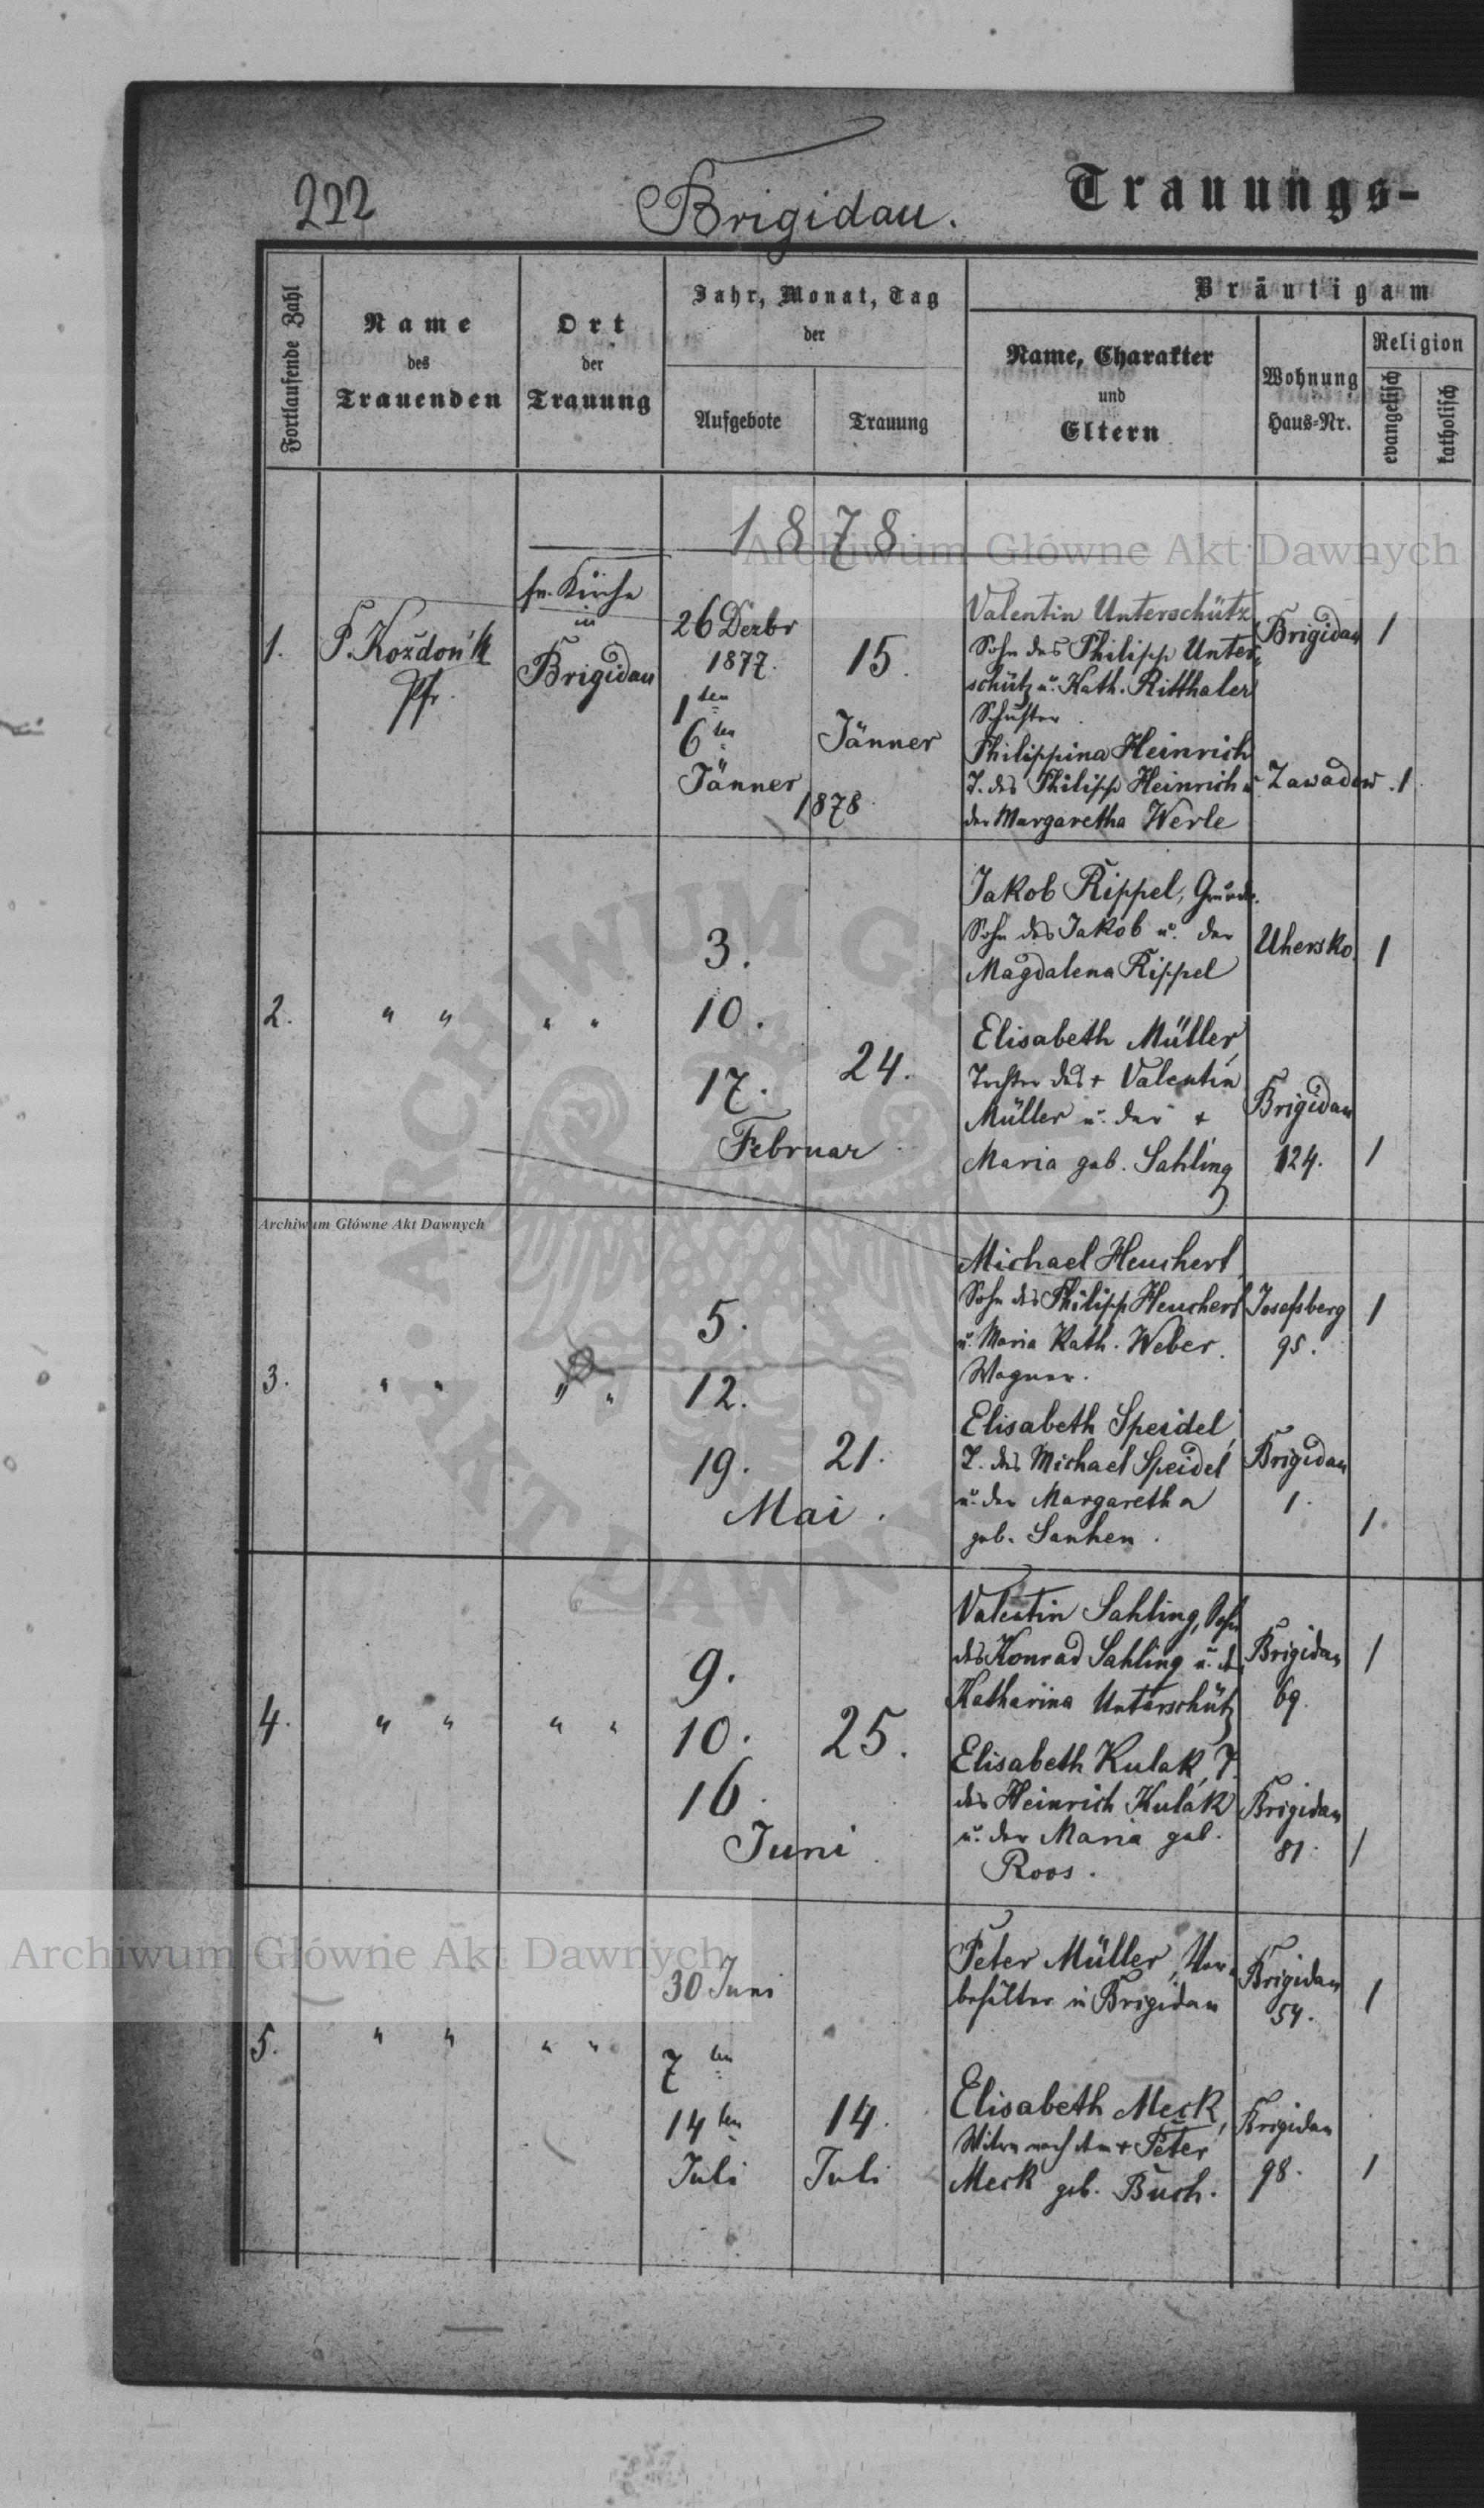 222
Brigidau.
Trauungs-
Fortlaufende Zahl
Name
des
Trauenden
Ort
der
Trauung
Jahr, Monat, Tag
der
Aufgebote
Trauung
Bräutigam
Name, Charakter
und
Eltern
Wohnung
Haus-Nr.
Religion
evangelisch
katholisch
1878
Archiwum Główne Akt Dawnych
1.
Pfr.
Kirche
in
Brigidau
26 Dezbr
1877.
1ten
6ten
Jänner
1878
15.
Jänner
Valentin Unterschütz
Sohn des Philipp Unter-
schütz u. Kath. Ritthaler
Schuster
Brigidau
1
Philippina Heinrich
T. des Philipp Heinrich u
der Margaretha Werle
Zawadow
1
2.
" "
" "
3.
10.
17.
24.
Februar
Jakob Rippel,
Sohn des Jakob u. der
Magdalena Rippel
Uhersko
1
Elisabeth Müller,
Tochter des + Valentin
Müller u. der +
Maria geb. Sahling
Brigidau
124.
1
Archiwum Główne Akt Dawnych
3.
" "
" "
5.
12.
19.
21.
Mai.
Michael Heuchert
Sohn des Philipp Heuchert
u. Maria Kath. Weber.
Wagner.
Josefsberg
95.
1
Elisabeth Speidel,
T. des Michael Speidel
u. der Margaretha
geb.
Brigidau
1.
1.
4.
" "
" "
9.
10.
16.
25.
Juni.
Valentin Sahling, Sohn
des Konrad Sahling u. d.
Katharina Unterschütz
Brigidau
69.
1
Elisabeth Kulak, T.
des Heinrich Kulak
u. der Maria geb.
Roos.
Brigidau
81.
1
Archiwum Główne Akt Dawnych
5.
" "
" "
30 Juni
7ten
14ten
Juli
14.
Juli
Peter Müller,
in Brigidau
Brigidau
54.
1
Elisabeth Meck,
Witwe nach dem + Peter
Meck geb. Buch.
Brigidau
98.
1
ARCHIWUM GŁÓWNE AKT DAWNYCH